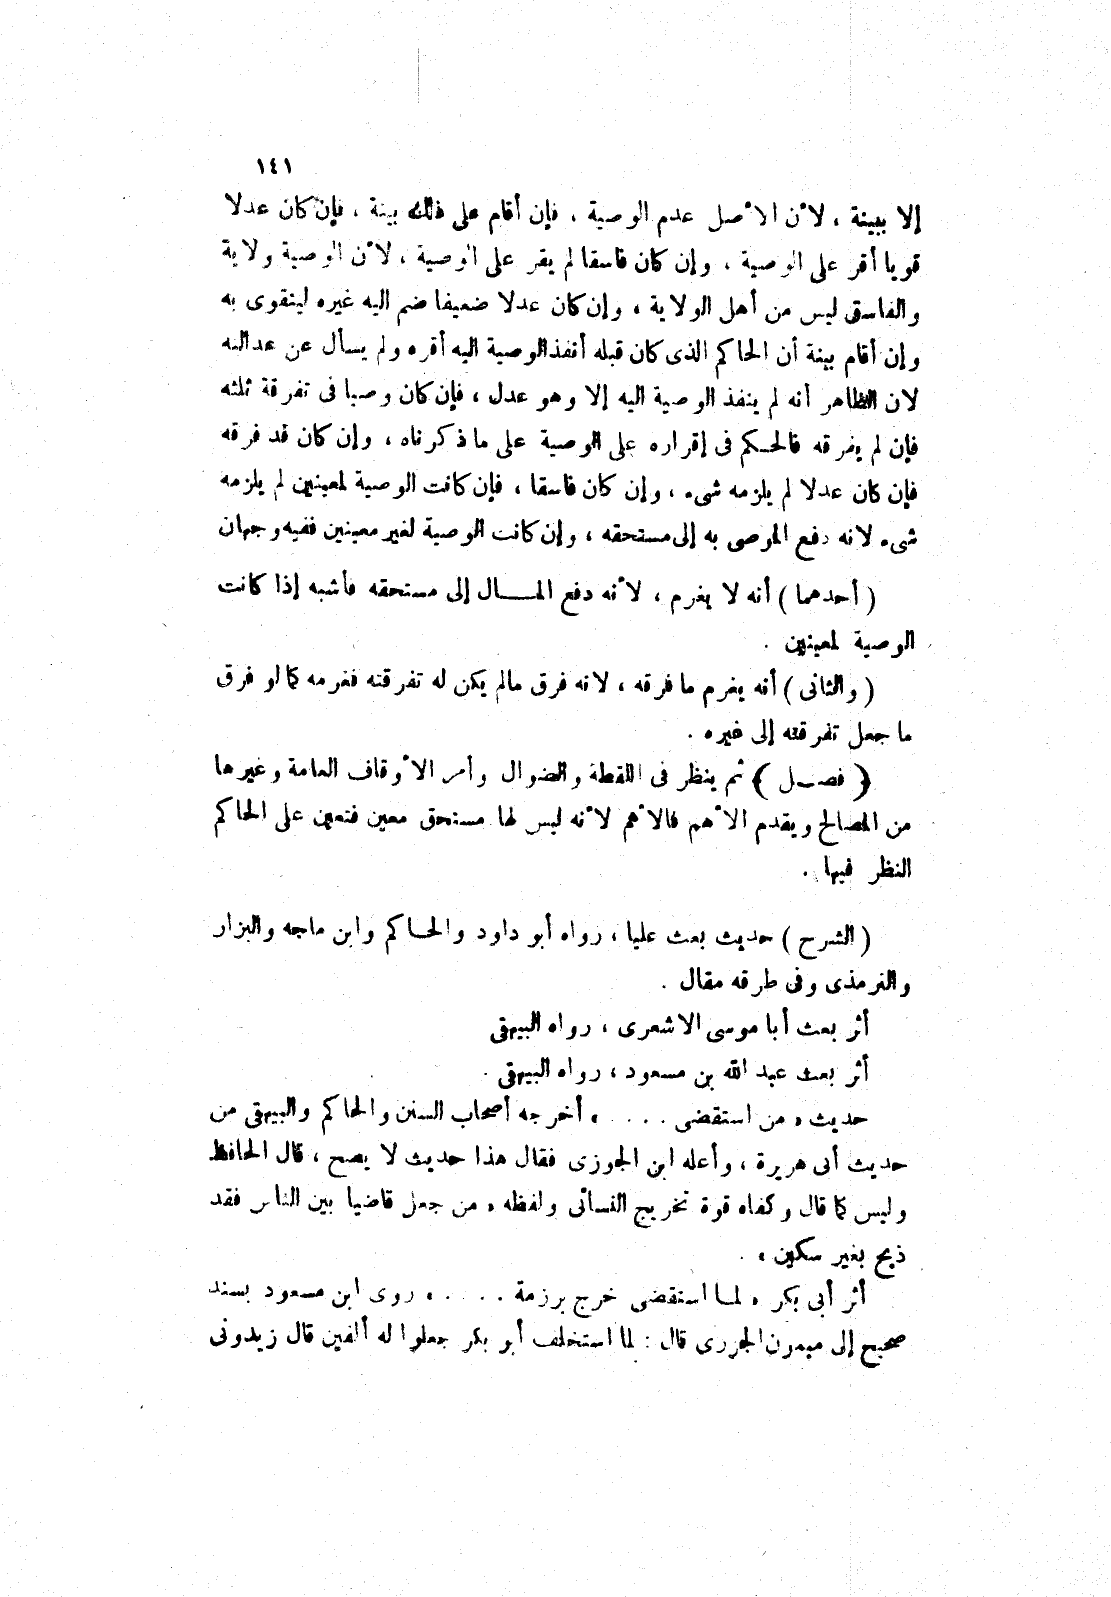 ١٤١
إلا ببينة ، لأن الأصل عدم الوصية ، فإن أقام على ذلك بينة ، فإن كان عدلا
قويا أقر على الوصية ، وإن كان فاسقا لم يقر على الوصية ، لأن الوصية ولاية
والفاسق ليس من أهل الولاية ، وإن كان عدلا ضعيفا ضم اليه غيره ليتقوى به
وإن أقام بينة أن الحاكم الذى كان قبله أنفذ الوصية اليه أقره ولم يسأل عن عدالته
لان الظاهر أنه لم ينفذ الوصية اليه إلا وهو عدل ، فإن كان وصيا فى تفرقة ثلثه
فإن لم يفرقه فالحكم فى إقراره على الوصية على ما ذكرناه ، وإن كان قد فرقه
فإن كان عدلا لم يلزمه شىء ، وإن كان فاسقا ، فإن كانت الوصية لمعينين لم يلزمه
شىء لانه دفع الموصى به إلى مستحقه ، وإن كانت الوصية لغير معينين ففيه وجهان
( أحدهما ) أنه لا يغرم ، لأنه دفع المــال إلى مستحقه فأشبه إذا كانت
الوصية لمعينين .
( والثانى ) أنه يغرم ما فرقه ، لانه فرق مالم يكن له تفرقته فغرمه كما لو فرق
ما جعل تفرقته إلى غيره .
﴿ فصــل ﴾ ثم ينظر فى اللقطة والضوال وأمر الأوقاف العامة وغيرها
من المصالح ويقدم الأهم فالأهم لأنه ليس لها مستحق معين فتعين على الحاكم
النظر فيها .
( الشرح ) حديث بعث عليا ، رواه أبو داود والحاكم وابن ماجه والبزار
والترمذى وفى طرقه مقال .
أثر بعث أبا موسى الاشعرى ، رواه البيهقى
أثر بعث عبد الله بن مسعود ، رواه البيهقى .
حديث « من استقضى . . . . » أخرجه أصحاب السنن والحاكم والبيهقى من
حديث أبى هريرة ، وأعله ابن الجوزى فقال هذا حديث لا يصح ، قال الحافظ
وليس كما قال وكفاه قوة تخريج النسائى ولفظه « من جعل قاضيا بين الناس فقد
ذبح بغير سكين » .
أثر أبى بكر « لما استقضى خرج برزمة . . . . » روى ابن مسعود بسند
صحيح إلى ميمون الجزرى قال : لما استخلف أبو بكر جعلوا له ألفين قال زيدونى